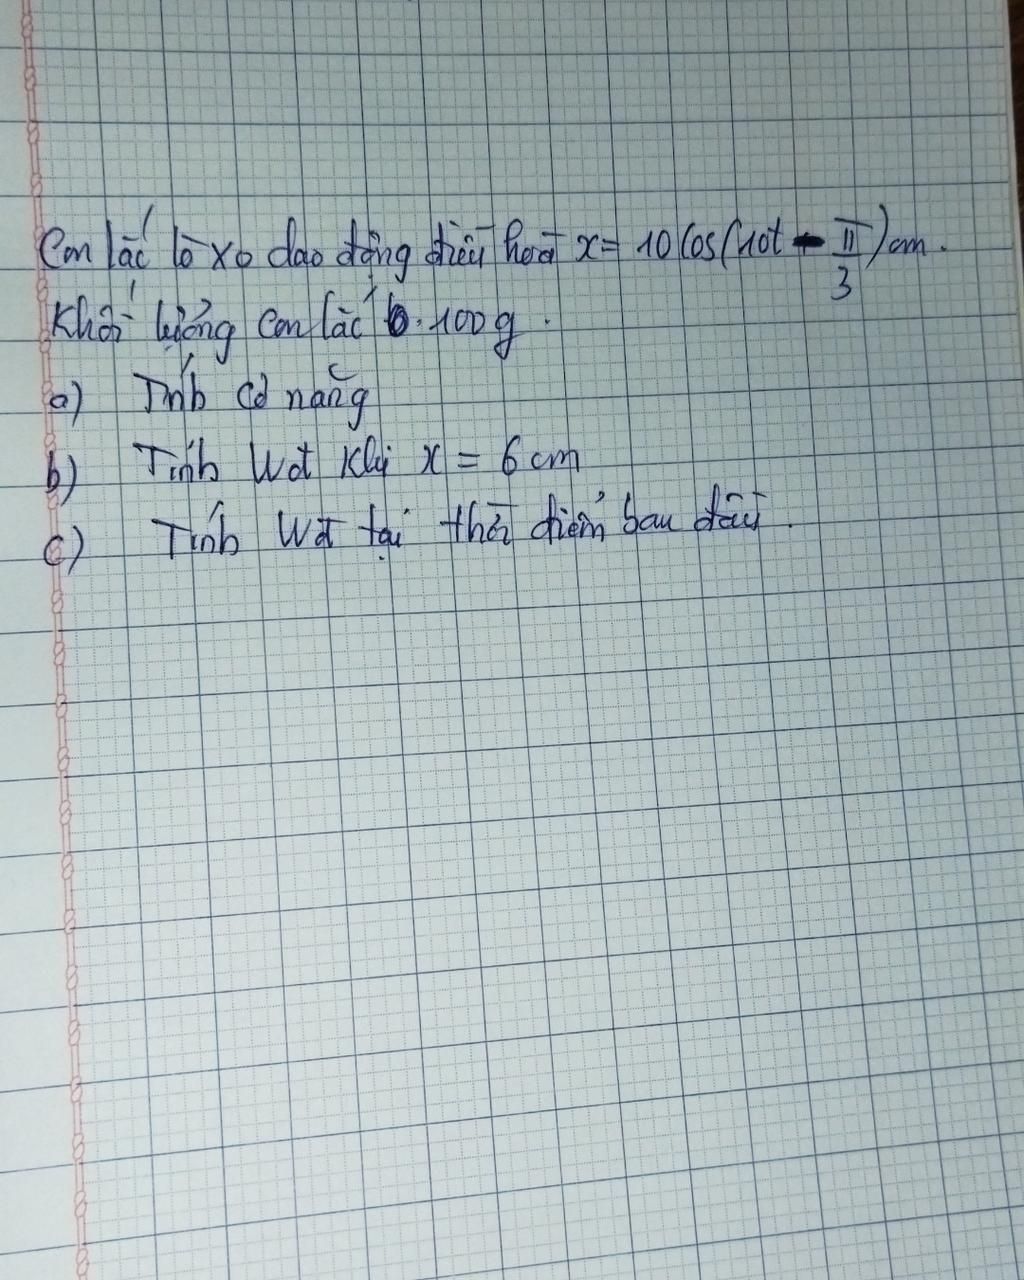 Con lắc lò xo dao động điều hoà x = 10 cos(10t - π/3) cm.
Khối lượng con lắc 100g.
a) Tính cơ năng
b) Tính Wđ khi x = 6 cm
c) Tính Wđ tại thời điểm ban đầu.